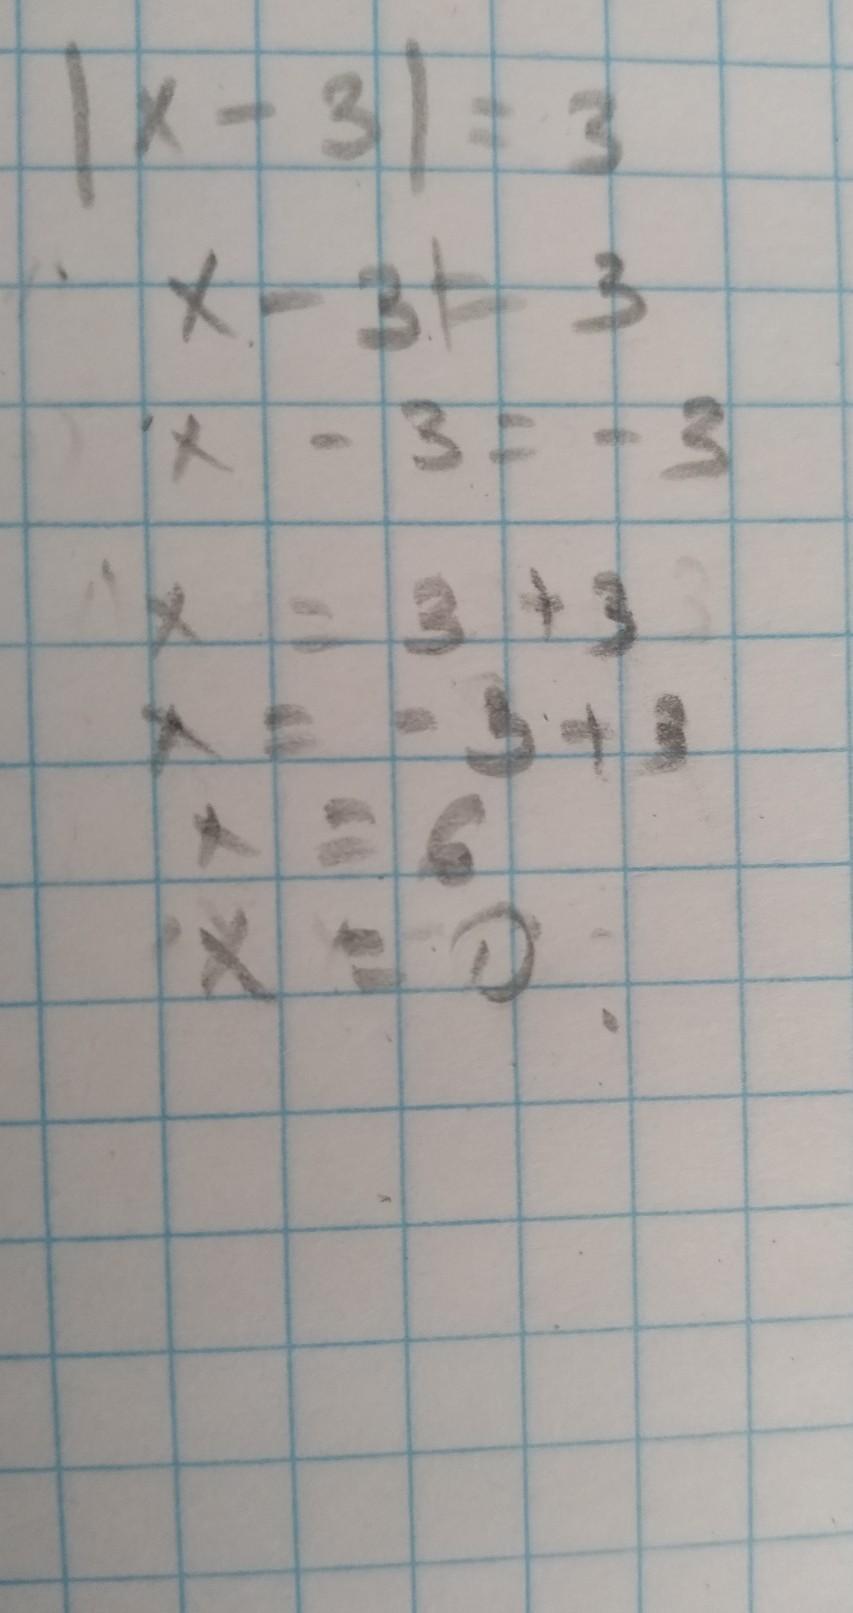 |x - 3| = 3
x - 3 = 3
x - 3 = - 3
x = 3 + 3
x = - 3 + 3
x = 6
x = 0